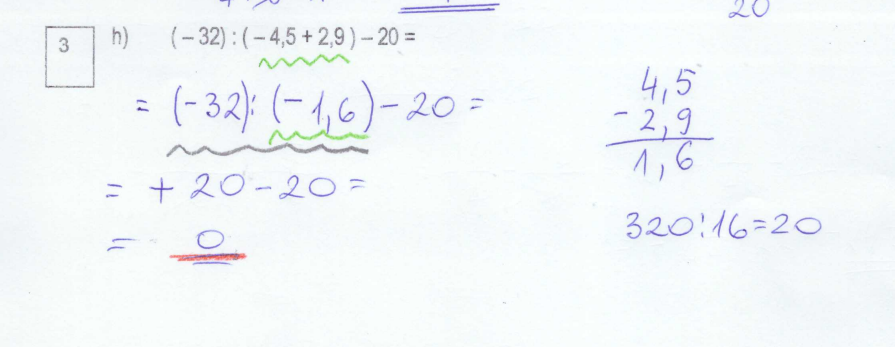 20
3 h) (−32) : (−4,5 + 2,9) − 20 =
= (−32) : (−1,6) − 20 =
= + 20 − 20 =
= 0
4,5
− 2,9
1,6
320 : 16 = 20